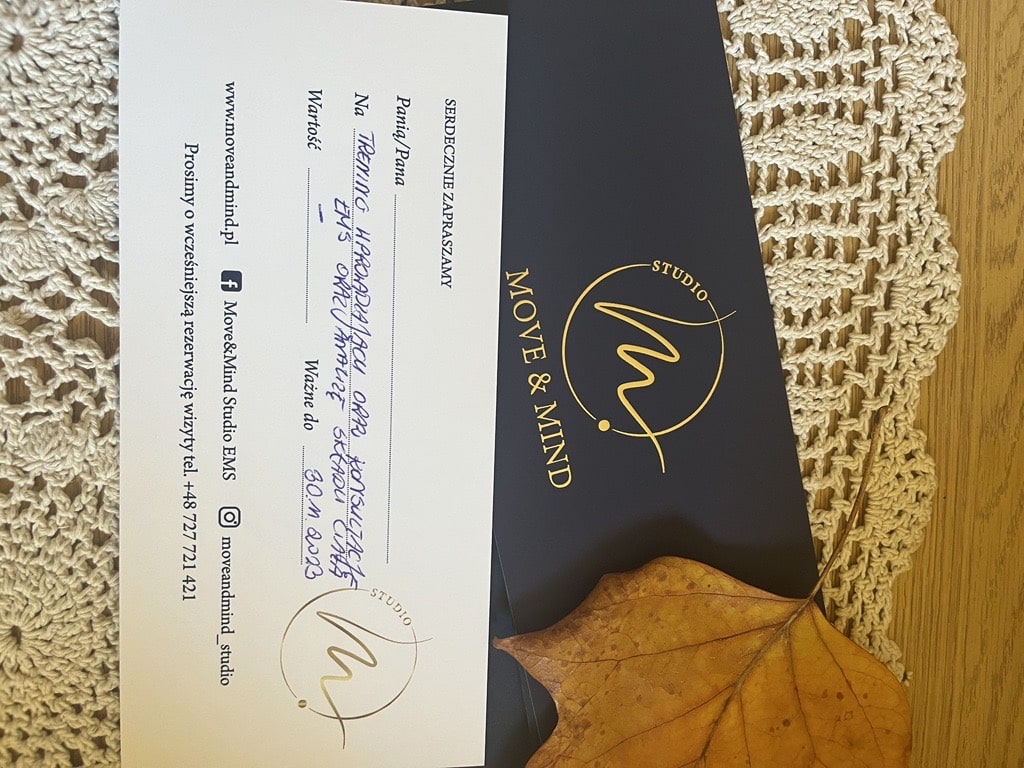 SERDECZNIE ZAPRASZAMY
Panią/Pana
Na TRENING WPROWADZAJĄCY ORAZ KONSULTACJE
EMS ORAZ ANALIZĘ SKŁADU CIAŁA
Wartość - Ważne do 30.11.2023
www.moveandmind.pl Move&Mind Studio EMS moveandmind_studio
Prosimy o wcześniejszą rezerwację wizyty tel. +48 727 721 421
STUDIO
STUDIO
MOVE & MIND